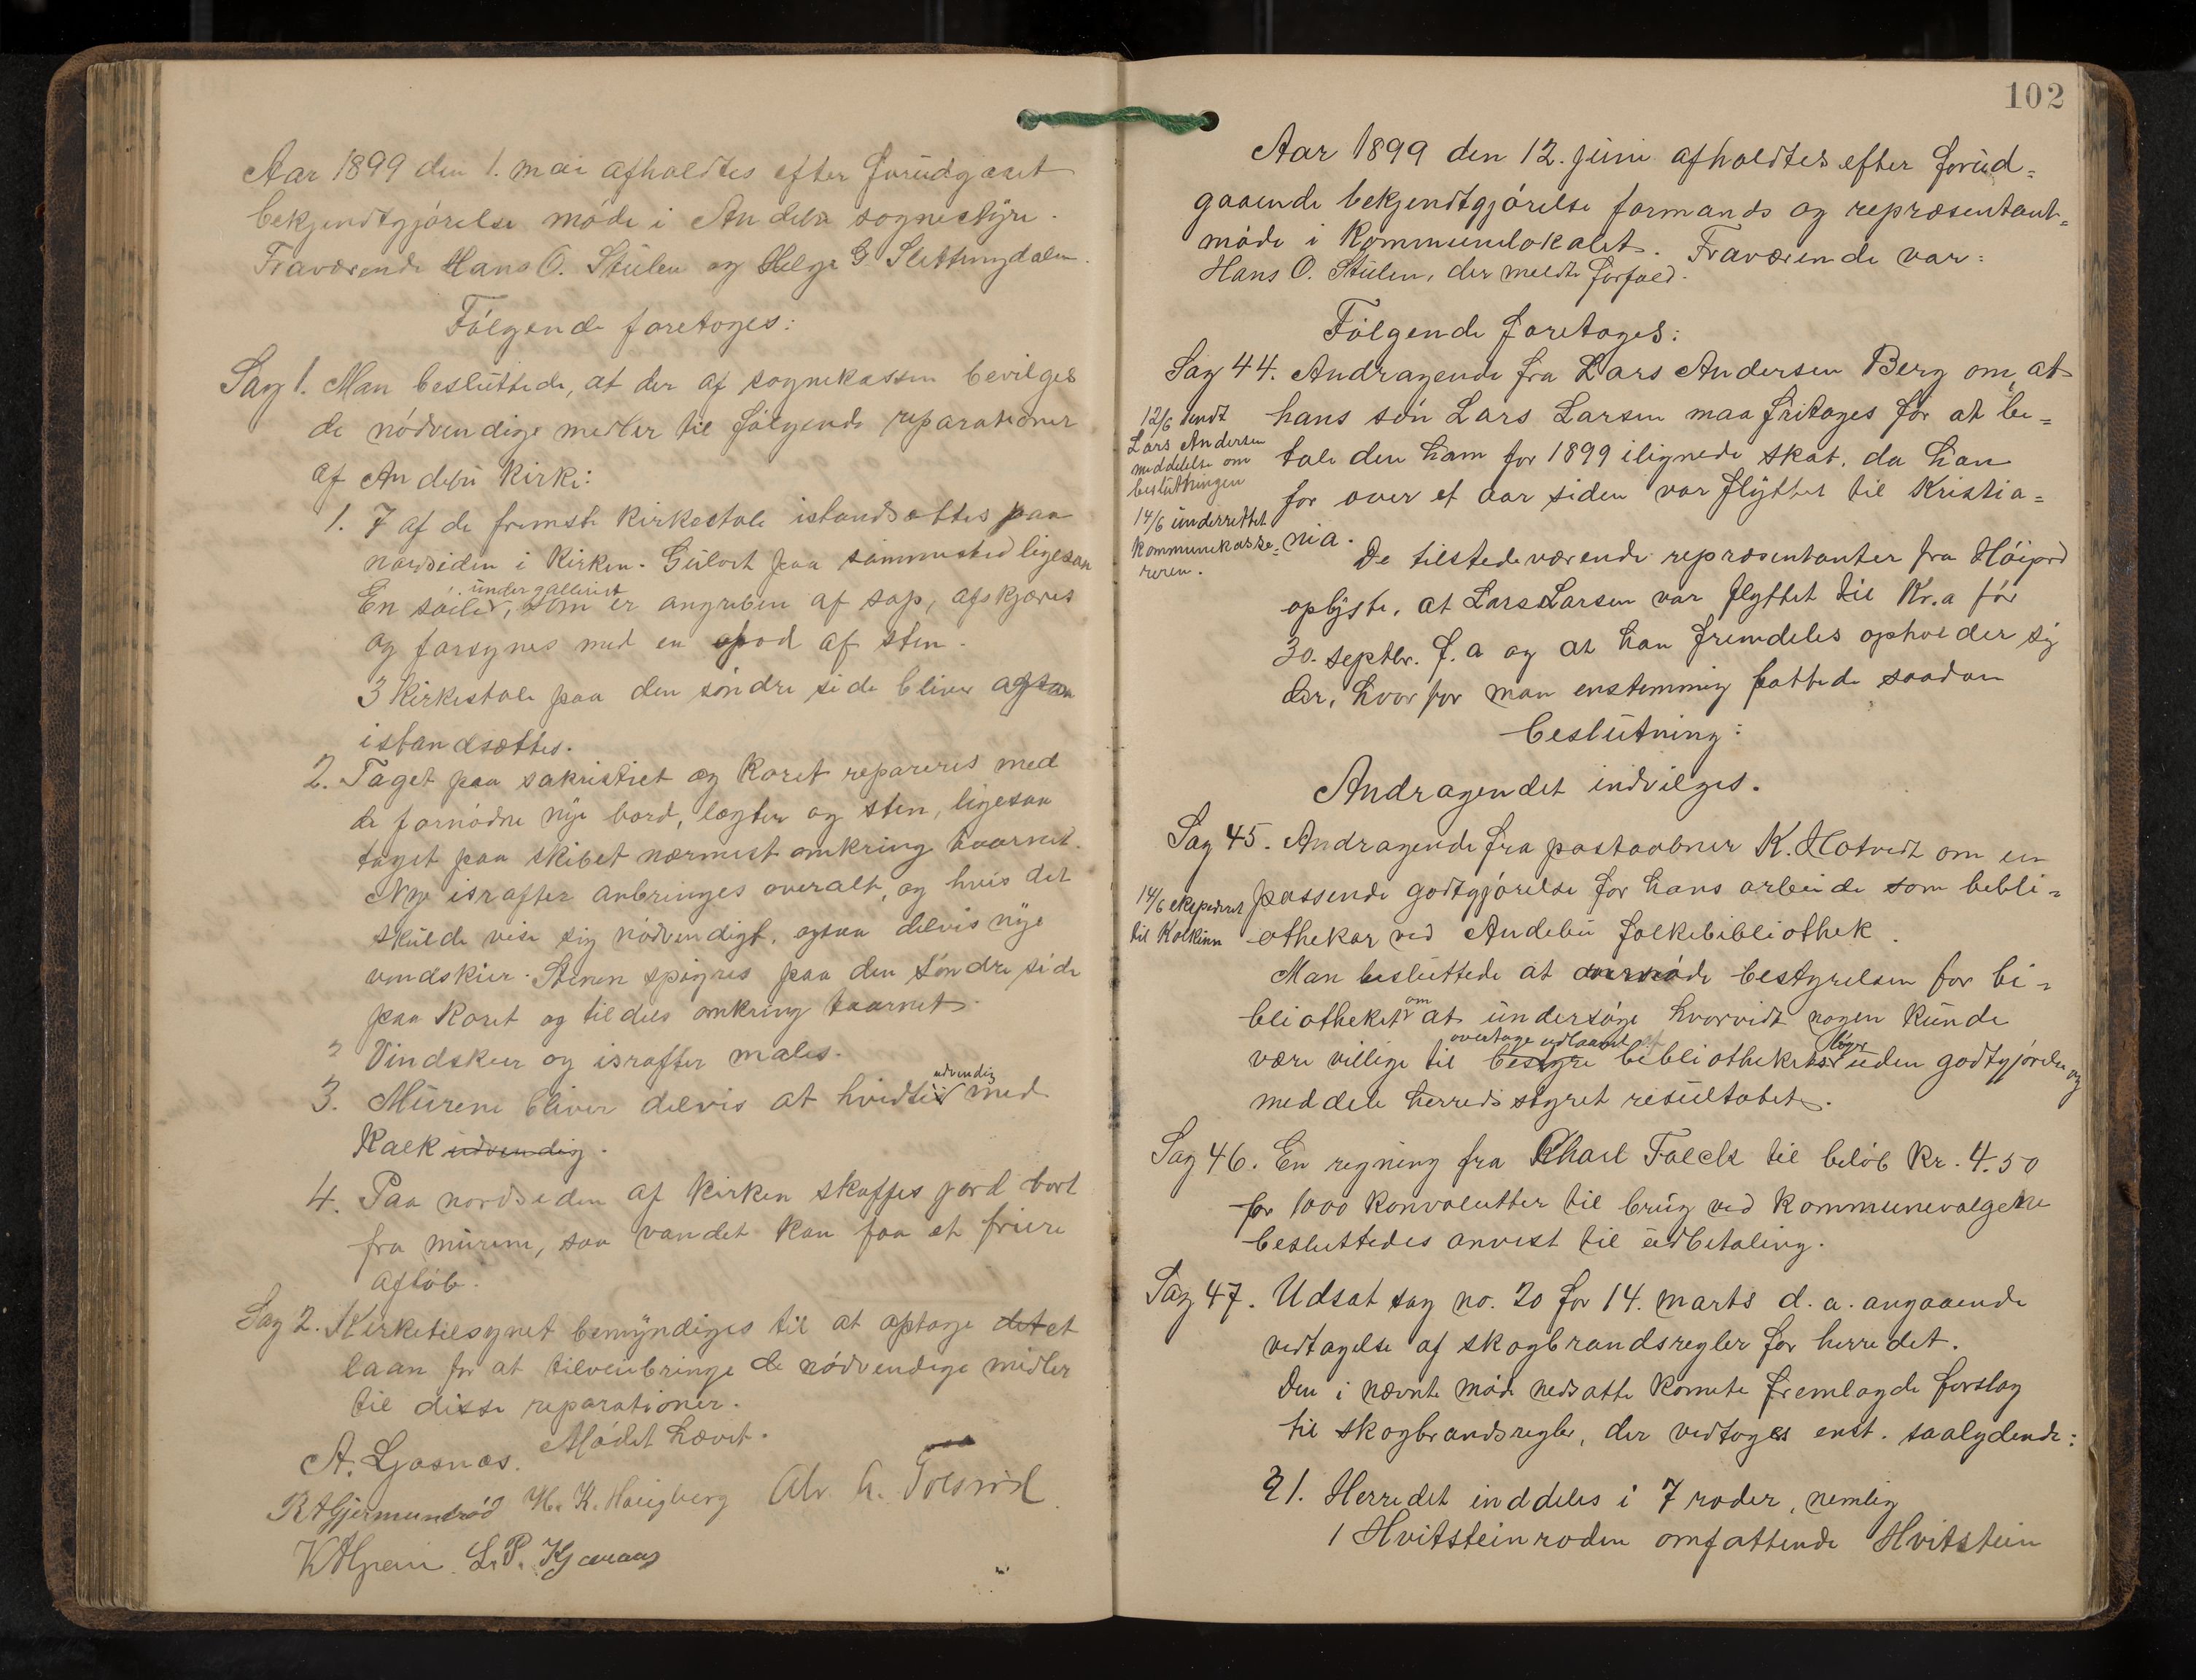 Aar 1899 den 1. mai afholdtes efter forudgaaet
bekjendtgjörelse möde i Andebu sognestyre.
Fraværende Hans O. Stulen og Helge G Slettingdalen.
Fölgende foretoges:
Sag 1. Man besluttede, at der af sognekassen bevilges
de nödvendige midler til fölgende reparationer
af Andebu kirke:
1. 7 af de fremste kirkestole istandsættes paa
nordsiden i kirken. Gulvet paa sammested ligesaa
under galleriet
En söile, som er angreben af sop, afskjæres
og forsynes med en fod af sten.
3 kirkestole paa den söndre side bliver ogsaa
istandsættes.
2. Taget paa sakristiet og koret repareres med
de fornödne nye bord, lægter og sten, ligesaa
taget paa skibet nærmest omkring taarnet.
Nye israfter anbringes overalt, og hvis det
skulde vise sig nödvendigt, ogsaa delvis nye
vindskier. Stenen spigres paa den söndre side
paa koret og tildels omkring taarnet.
Vindskier og israfter males.
udvendig
3. Murene bliver delvis at hvidte med
kalk udvendig.
4. Paa nordsiden af kirken skaffes jord bort
fra murene, saa vandet kan faa et friere
aflöb.
Sag 2. Kirketilsynet bemyndiges til at optage det et
laan for at tilveiebringe de nödvendige midler
til disse reparationer.
Mödet hævet.
A. Gjosnæs.
R A Gjermundröd H. K. Haugberg Alv. A. Tolsröd
L. P. Kjæraas
102
Aar 1899 den 12. juni afholdtes efter forud=
gaaende bekjendtgjörelse formands og repræsentant=
möde i kommunelokalet. Fraværende var:
Hans O. Stulen, der meldte forfald.
Fölgende foretoges:
Sag 44. Andragende fra Lars Andersen Berg om, at
hans sön Lars Larsen maa fritages for at be=
tale den ham for 1899 ilignede skat, da han
for over et aar siden var flyttet til Kristia=
nia.
12/6 sendt
Lars Andersen
meddelelse om
beslutningen
14/6 underrettet
kommunekasse=
reren.
De tilstedeværende repræsentanter fra Höijord
oplyste, at Lars Larsen var flyttet til Kr.a för
30. septbr. f. a og at han fremdeles opholder sig
der, hvorfor man enstemmig fattede saadan
beslutning:
Andragendet indvilges.
Sag 45. Andragende fra postaabner K. Hotvedt om en
passende godtgjörelse for hans arbeide som bibli=
othekar ved Andebu folkebibliothek.
14/6 ekspederet
til Kolkinn
Man besluttede at anmode bestyrelsen for bi=
om
bliotheket at undersöge hvorvidt nogen kunde
overtage udlaanet af böger
være villige til bestyre bibliothekets uden godtgjörelse og
meddele herredsstyret resultatet.
Sag 46. En regning fra Kharl Falck til belöb kr. 4.50
for 1000 konvolutter til brug ved kommunevalgene
besluttedes anvist til udbetaling.
Sag 47. Udsat sag no. 20 for 14. marts d. a. angaaende
vedtagelse af skogbrandsregler for herredet.
Den i nævnte möde nedsatte komite fremlagde forslag
til skogbrandsregler, der vedtoges enst. saalydende:
§ 1. Herredet inddeles i 7 roder, nemlig
1 Hvitsteinroden omfattende Hvitstein